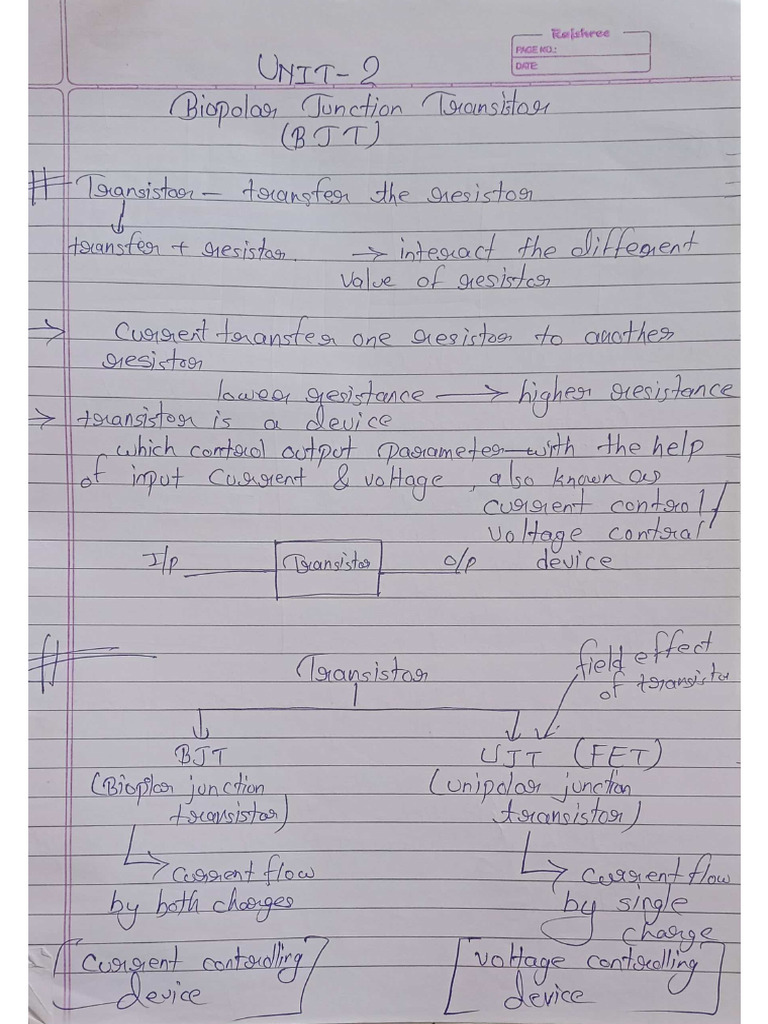 Rajshree
PAGE NO.:
DATE:
UNIT-2
Biopolar Junction Transistor
(BJT)
# Transistor - transfer the resistor
transfer + resistor. → interact the different
value of resistor
→ Current transfer one resistor to another
resistor
lower resistance → higher resistance
→ transistor is a device
which control output parameter with the help
of input current & voltage, also known as
current control/
voltage control
I/p Transistor O/p device
# Transistor
field effect
of transistor
BJT UJT (FET)
(Bioplar junction (unipolar junction
transistor) transistor)
current flow current flow
by both charges by single
charge
current controlling voltage controlling
device device